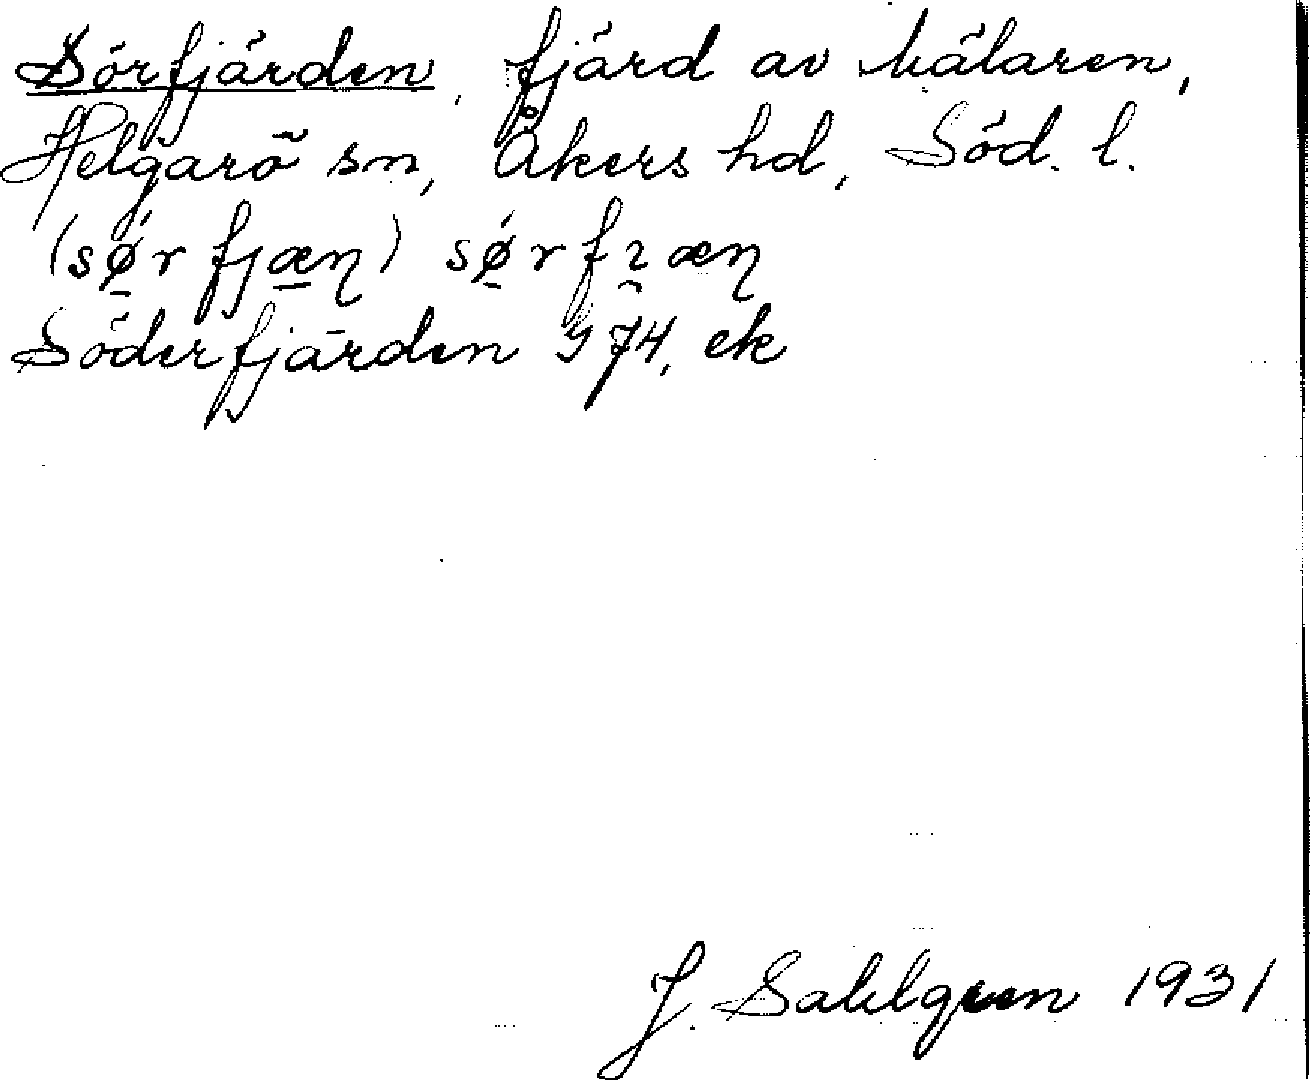 Sörfjärden, fjärd av Mälaren,
Helgarö sn, Åkers hd, Söd. l.
(sǿ̠r fjæ̠ɳ) sǿ̠rfɿ̯æɳ
Söderfjärden 974, ek
J. Sahlgren 1931